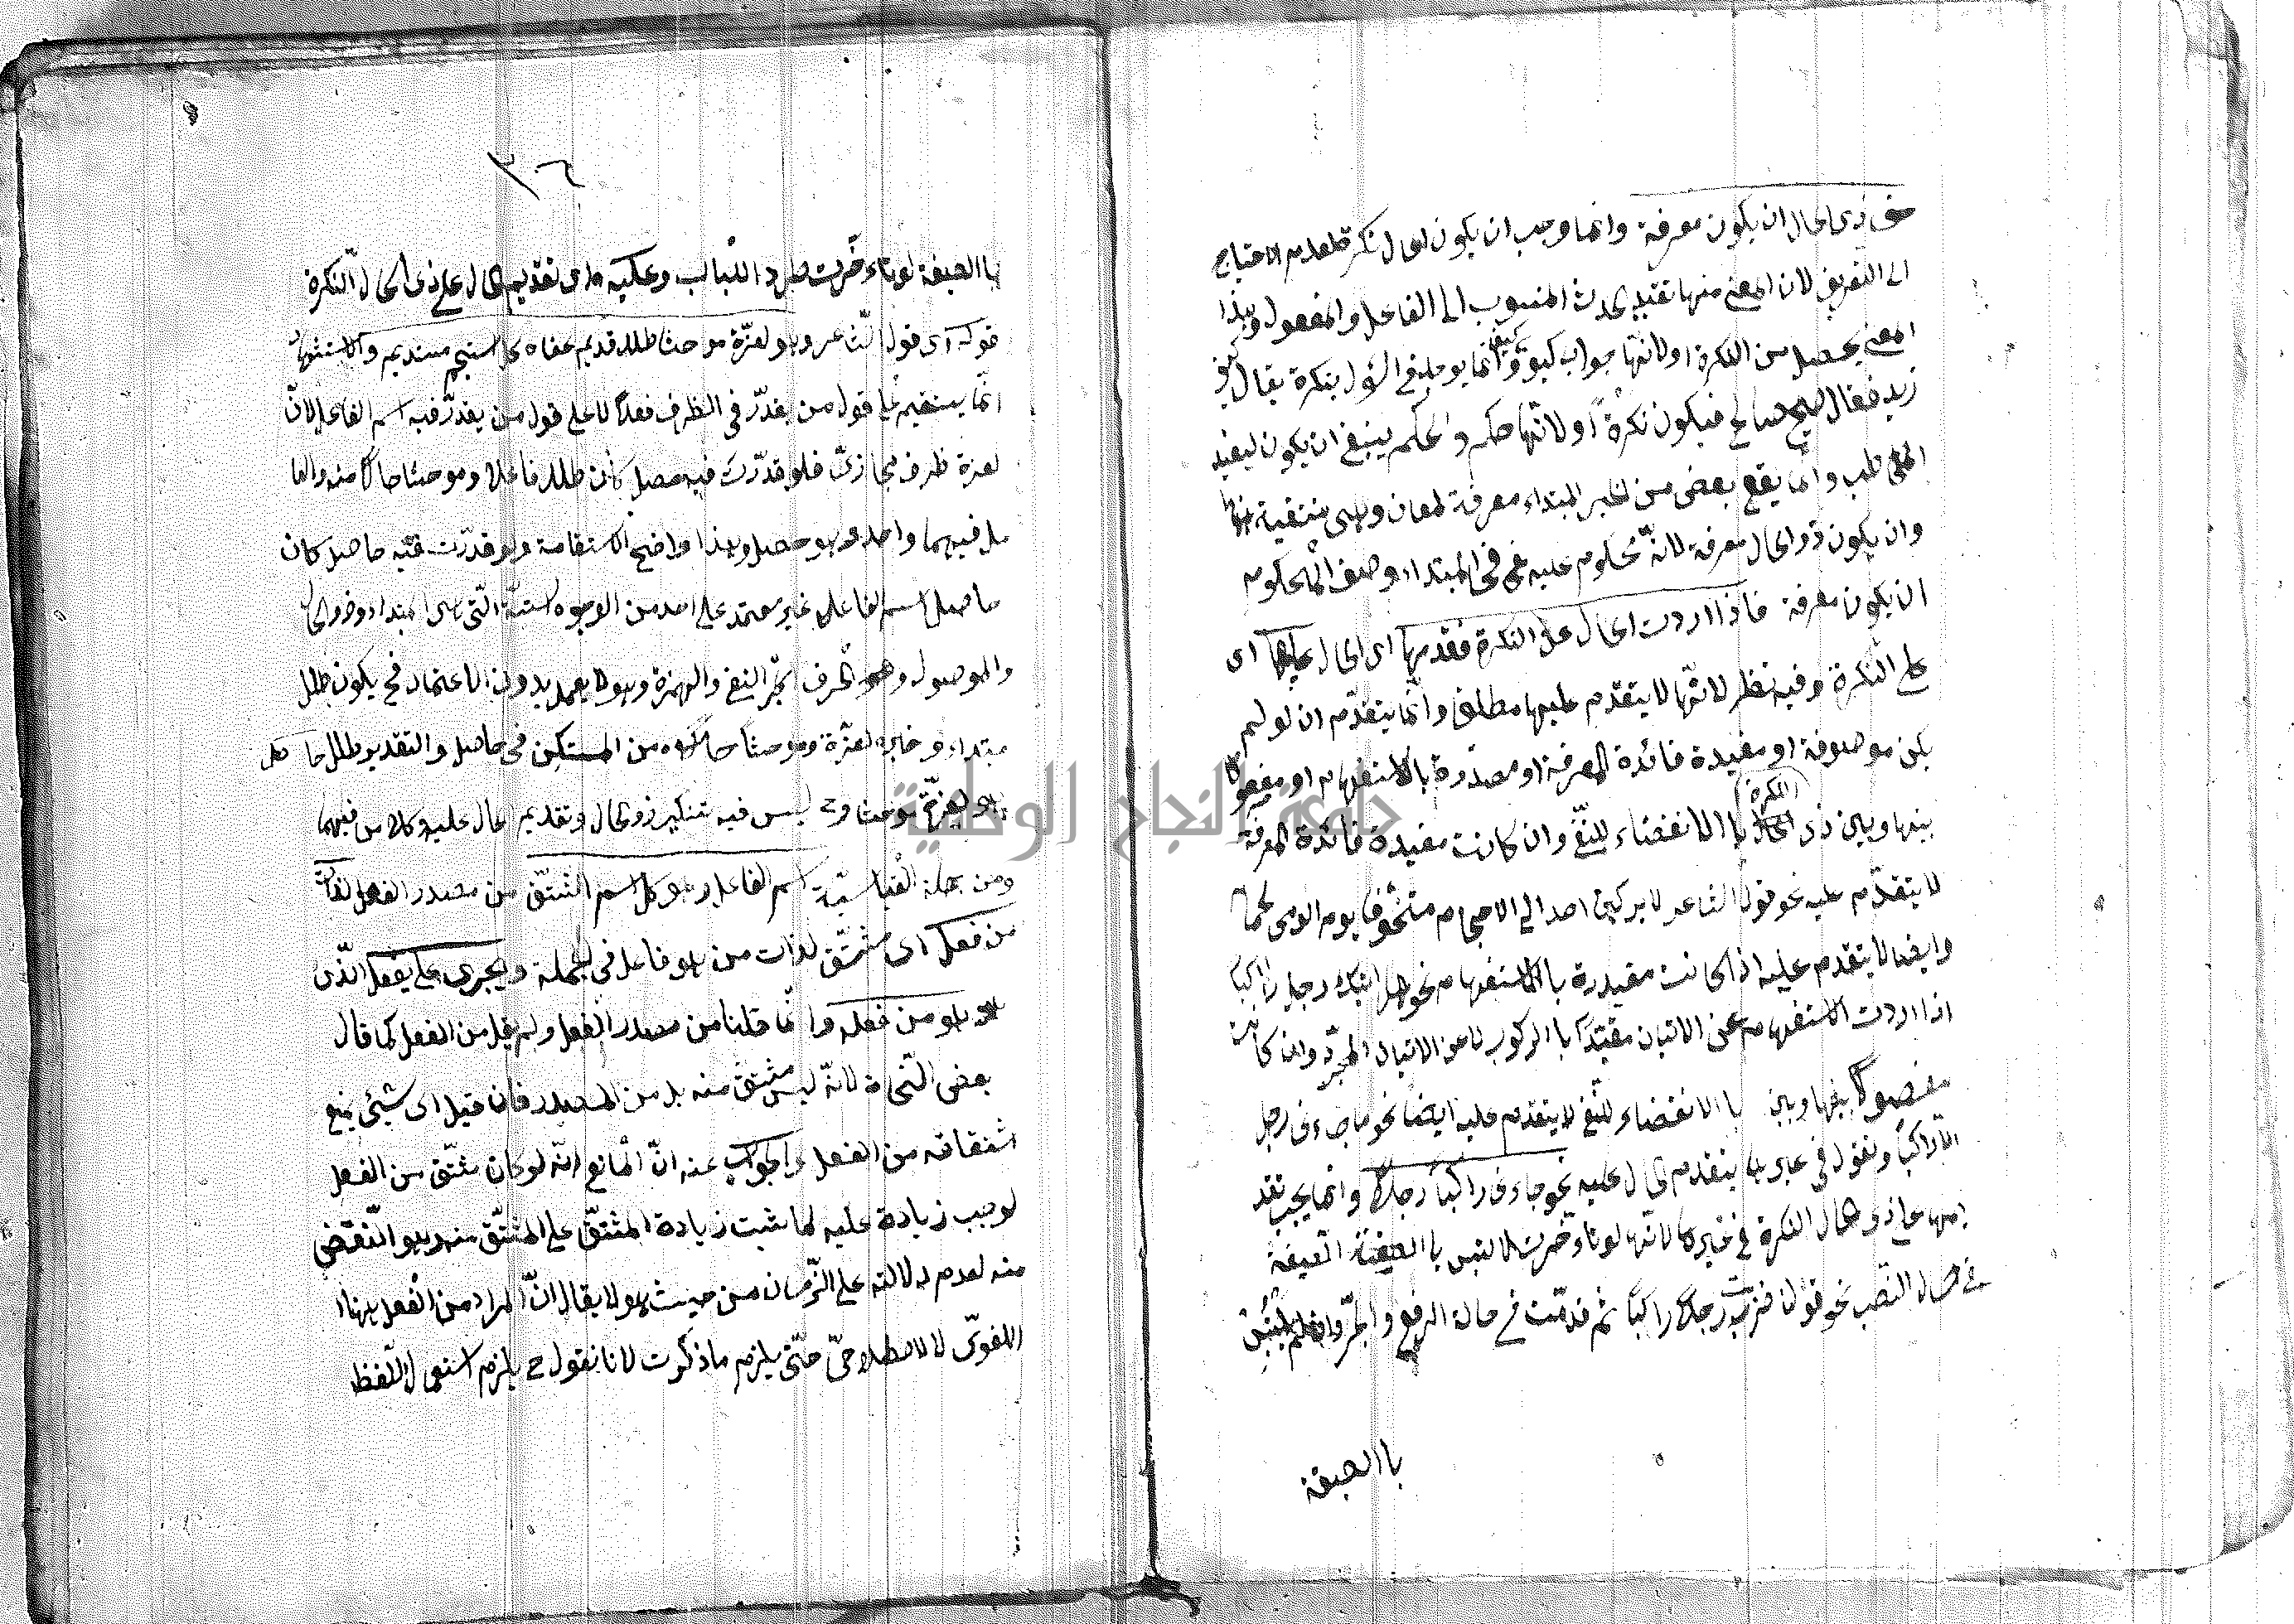 حق ذى الحال ان يكون معرفة وانما وجب ان يكون الحال نكرة لعدم الاحتياج
الى التعريف لان المعنى منها تقييد الحدث المنسوب الى الفاعل والمفعول وهذا
المعنى يحصل من النكرة او لانها جواب كيف وانما يوصل فى السؤل بنكرة يقال كيف
زيد فقال صالح فيكون نكرة او لانها حكم والحكم ينبغى ان يكون ليفيد
المخاطب وانما يقع بعض من الخبر المبتداء معرفة لمعان وهى منتفية منها
وان يكون ذو الحال معرفة لانه محكوم عليه فى المبتداء وصف المحكوم
ان يكون معرفة فاذا اردت الحال على النكرة فقدمها اى الحال عليها اى
على النكرة وفيه نظر لانها لا يتقدم عليها مطلقا وانما يتقدم ان لو لم
يكن موصوفة او مفيدة فائدة المعرفة او مصدرة بالاستفهام او مفصولا
بينها وبين ذى الحال النكرة باالانقضاء للنفى وان كانت مفيدة فائدة المعرفة
لا يتقدم عليه نحو قول الشاعر لا يركبن احد الى الاحجام متخوفا يوم الوغى لحمام
وايضا لا يتقدم عليه اذا كانت مقيدرة باالاستفهام نحو هل اتيك رجل راكبا
اذا اردت الاستفهام عن الاتيان مقيدا باالركوب لا عن الاتيان المجرد وان كانت
مفصولا بينها وبين باالانقضاء للنفى لا يتقدم عليه ايضا نحو ما جاءنى رجل
الا راكبا ونقول فى غيرها يتقدم الحال عليه نحو جاءنى راكبا رجل وانما يجب تقد
يمها على ذى الحال النكرة فى غيرها لانها لو تأخرت لالتبس باالصفة
فى حال النصب نحو قولنا ضربت رجلا راكبا ثم قدمت فى حالة الرفع والجر وان لم يلتبس
باالصفة
٣٠٦
باالصفة لو تاءخرت طرد اللباب وعليه اى تقديم الحال على ذى الحال النكرة
قوله اى قول الشاعر وهو لعزة موحشا طلل قديم عفاه كل اسحم مستديم والاستشهاد
انما يستقيم على قول من يقدر فى الظرف فعلا لا على قول من يقدر فيه اسم الفاعل لان
لعزة ظرف مجازى فلو قدرت فيه حصل كان طلل فاعلا وموحشا حالا منه والعا
مل فيهما واحد وهو حصل وهذا واضح الاستقامة ولو قدرت فيه حاصل كان
حاصل اسم الفاعل غير معتمد على احد من الوجوه الستة التى هى المبتداء وذو الحال
والموصول وحرف النفى والهمزة وهو لا يعمل بدون الاعتماد فح يكون طلل
مبتداء وخبره لعزة وموحشا حالا من المستكن فى حاصل والتقدير طلل حاصل
لعزة موحشا وح ليس فيه تنكير ذو الحال وتقديم الحال عليه وكلامن فيهما
ومن جملة القياسية اسم الفاعل وهو كل اسم اشتق من مصدر الفعل لذات
من فعل اى مشتق لذات من هو فاعل فى الجملة ويجرى على يفعل الذى
هو من فعله وانما قلنا من مصدر الفعل ولم يقل من الفعل كما قال
بعض النحاة لانه ليس مشتق منه بل من المصدر فان قيل اى شيئ يمنع
اشتقاقه من الفعل والجواب عنه ان المانع انه لو كان مشتق من الفعل
لوجب زيادة عليه لما ثبت زيادة المشتق على المشتق منه وهو النقض
منه لعدم دلالته على الزمان من حيث هو لا يقال ان المراد من الفعل هنا
اللغوى لا الاصطلاحى حتى يلزم ما ذكرت لانا نقول ح يلزم استعمال اللفظ
جامعة النجاح الوطنية